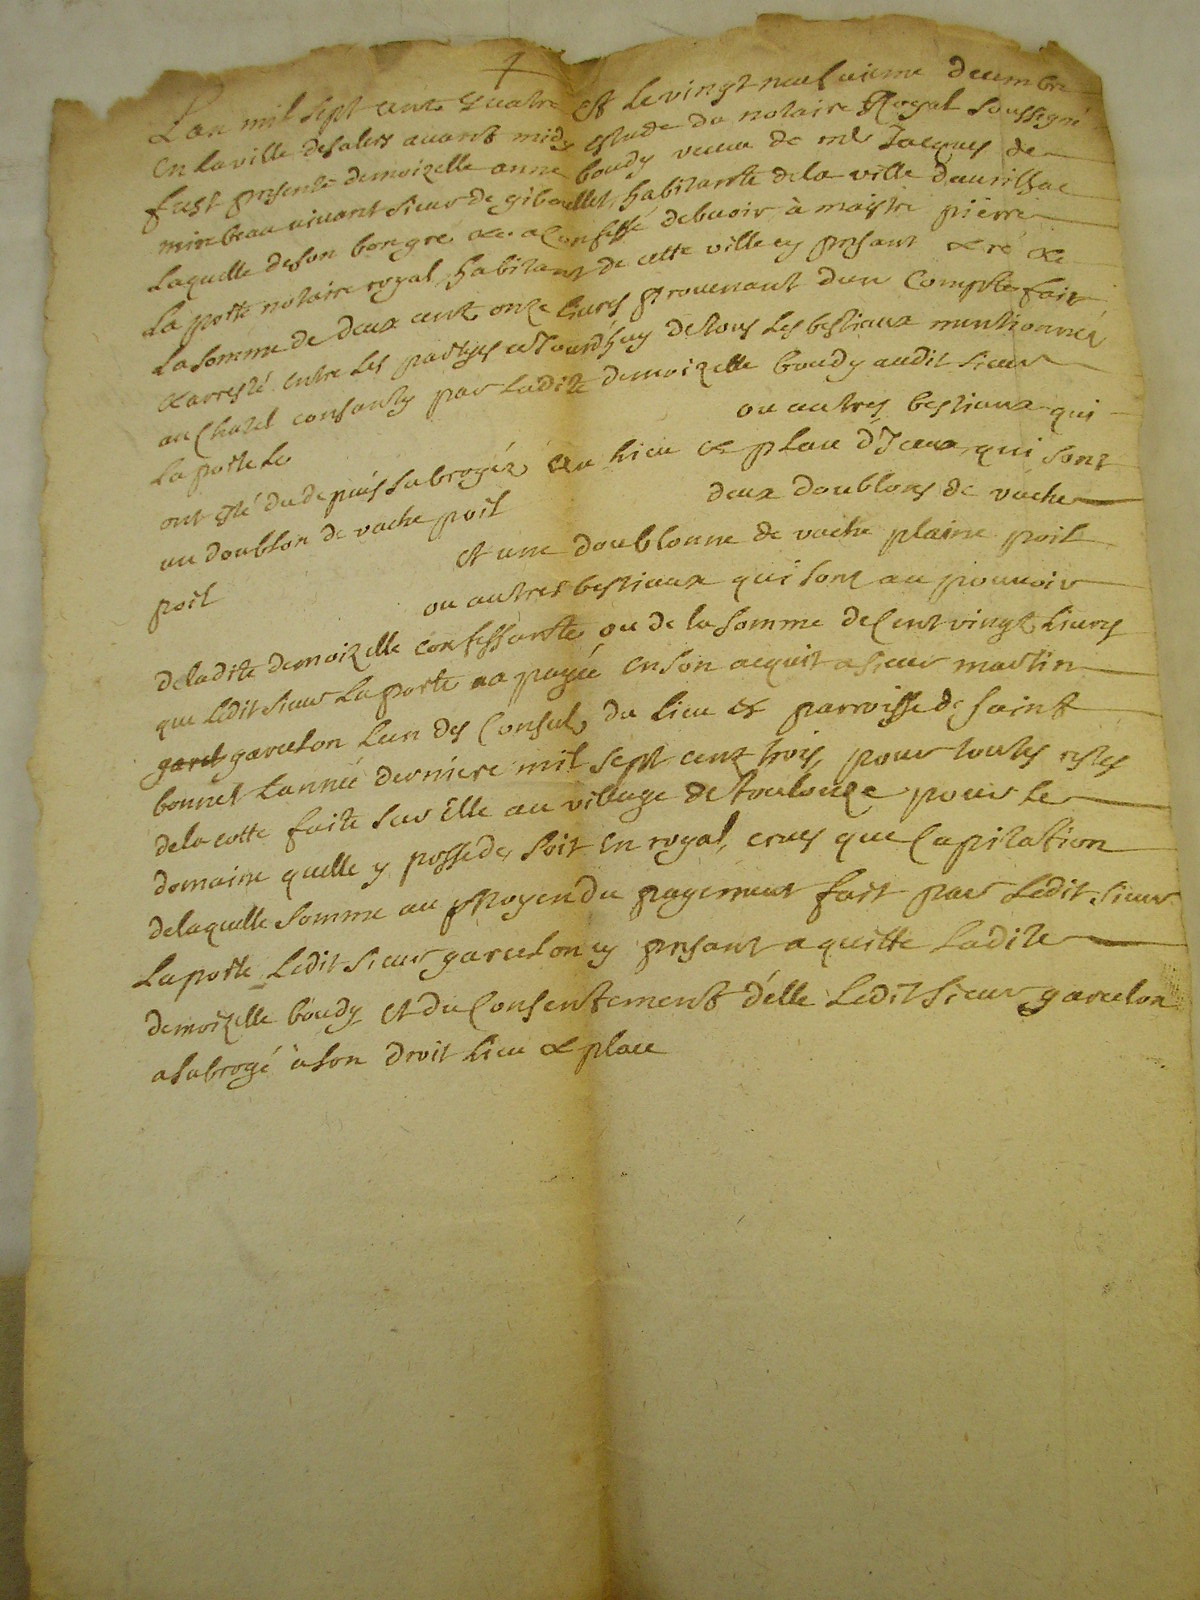 Lan mil sept cent quatre et le vingt neufvieme decembre
en la ville de salers avant midy estude du notaire Royal soussigné
fust presente demoizelle anne boudy veuve de me Jacques de
mirebeau vivant sieur de giboullet, habitante de la ville d'aurilhac
laquelle de son bon gré &c a confessé debvoir à maistre pierre
La porte notaire royal habitant de cette ville cy presant &c &c
La somme de deux cent onze livres provenant dun compte fait
& arresté entre les partyes ce Jourdhuy de tous les bestiaux mentionnés
au Chatel consanty par ladite demoizelle boudy audit sieur
La porte le ou autres bestiaux qui
ont esté du depuis subrogéz au lieu & place d'Iceux, qui sont
un doublon de vache poil deux doublons de vache
poil et une doublonne de vache plaine poil
ou autres bestiaux qui sont au pouvoir
de ladite demoizelle confessante ou de la somme de Cent vingt livres
que ledit sieur La porte a payée en son acquit a sieur martin
garcelon lun des Consuls du lieu & parroisse de saint
bonnet Lannée derniere mil sept cent trois, pour toutes restes
de la cotte faite sur Elle au village de toulouze pour le
domaine quelle y possede, soit en royal, crues que Capitation
de laquelle somme au moyen du payement fait par Ledit sieur
La porte Ledit sieur garcelon cy presant a quitte ladite
demoizelle boudy et du Consentement d'elle Ledit sieur garcelon
a subrogé à son droit lieu & place